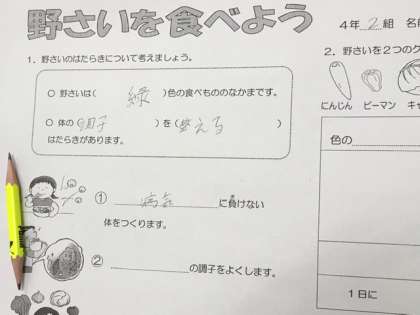 野さいを食べよう
4年 2 組 名前
1. 野さいのはたらきについて考えましょう。
○ 野さいは( 緑 )色の食べもののなかまです。
○ 体の(調子 )を(整える )
はたらきがあります。
① 病気 に負けない
体をつくります。
② の調子をよくします。
2. 野さいを2つのグ
にんじん ピーマン キャ
色の
1日に